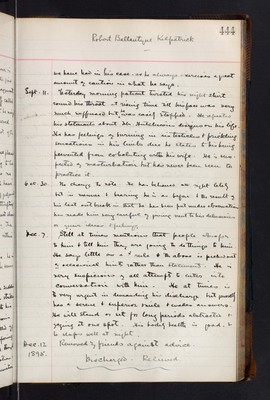 444
Robert Ballantyne Kilpatrick
we have had in his case as he always exercises a great
amount of caution in what he says.
Sept. 11. Yesterday morning patient twisted his night shirt
round his throat at rising time till his face was very
much suffused but was easily stopped. He repeats
his statements about the Mitchinsons designs on his life.
He has feelings of burning in his testicles & prickling
sensations in his limbs due he states to his being
prevented from cohabiting with his wife. He is
of masturbation but has never been seen to
practise it.
Oct. 30. No change to note. He has behaved all right lately
but in manner & bearing he is as before. The result of
his last outbreak in that he has been put under observation
has made him very careful of giving vent to his delusions
or
Dec. 7. Still at times mentions that people whisper
to him & tell him they are going to do things to him.
He says little as a rule & the above is
of occasional hints rather than statement. He is
very suspicious of all attempts to enter into
conversation with him. He at times is
very urgent in demanding his discharge but usually
has a severe & superior smile & evades answers.
He will stand or sit for long periods abstracted &
gazing at one spot. His bodily health is good. &
he sleeps well at night.
Dec. 12 Removed by friends against advice.
1898.
Discharged - Relieved